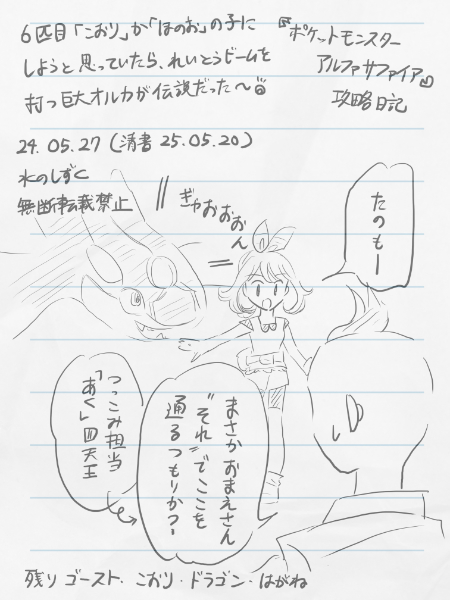 『ポケットモンスター
アルファサファイア』
攻略日記
6匹目「こおり」か「ほのお」の子に
しようと思っていたら、れいとうビームを
打つ巨大オルカが伝説だった〜
24.05.27(清書 25.05.20)
水のしずく
無断転載禁止
たのもー
ぎゃおおおん
まさかおまえさん
"それ"でここを
通るつもりかっ?
つっこみ担当
「あく」四天王
残り ゴースト・こおり・ドラゴン・はがね